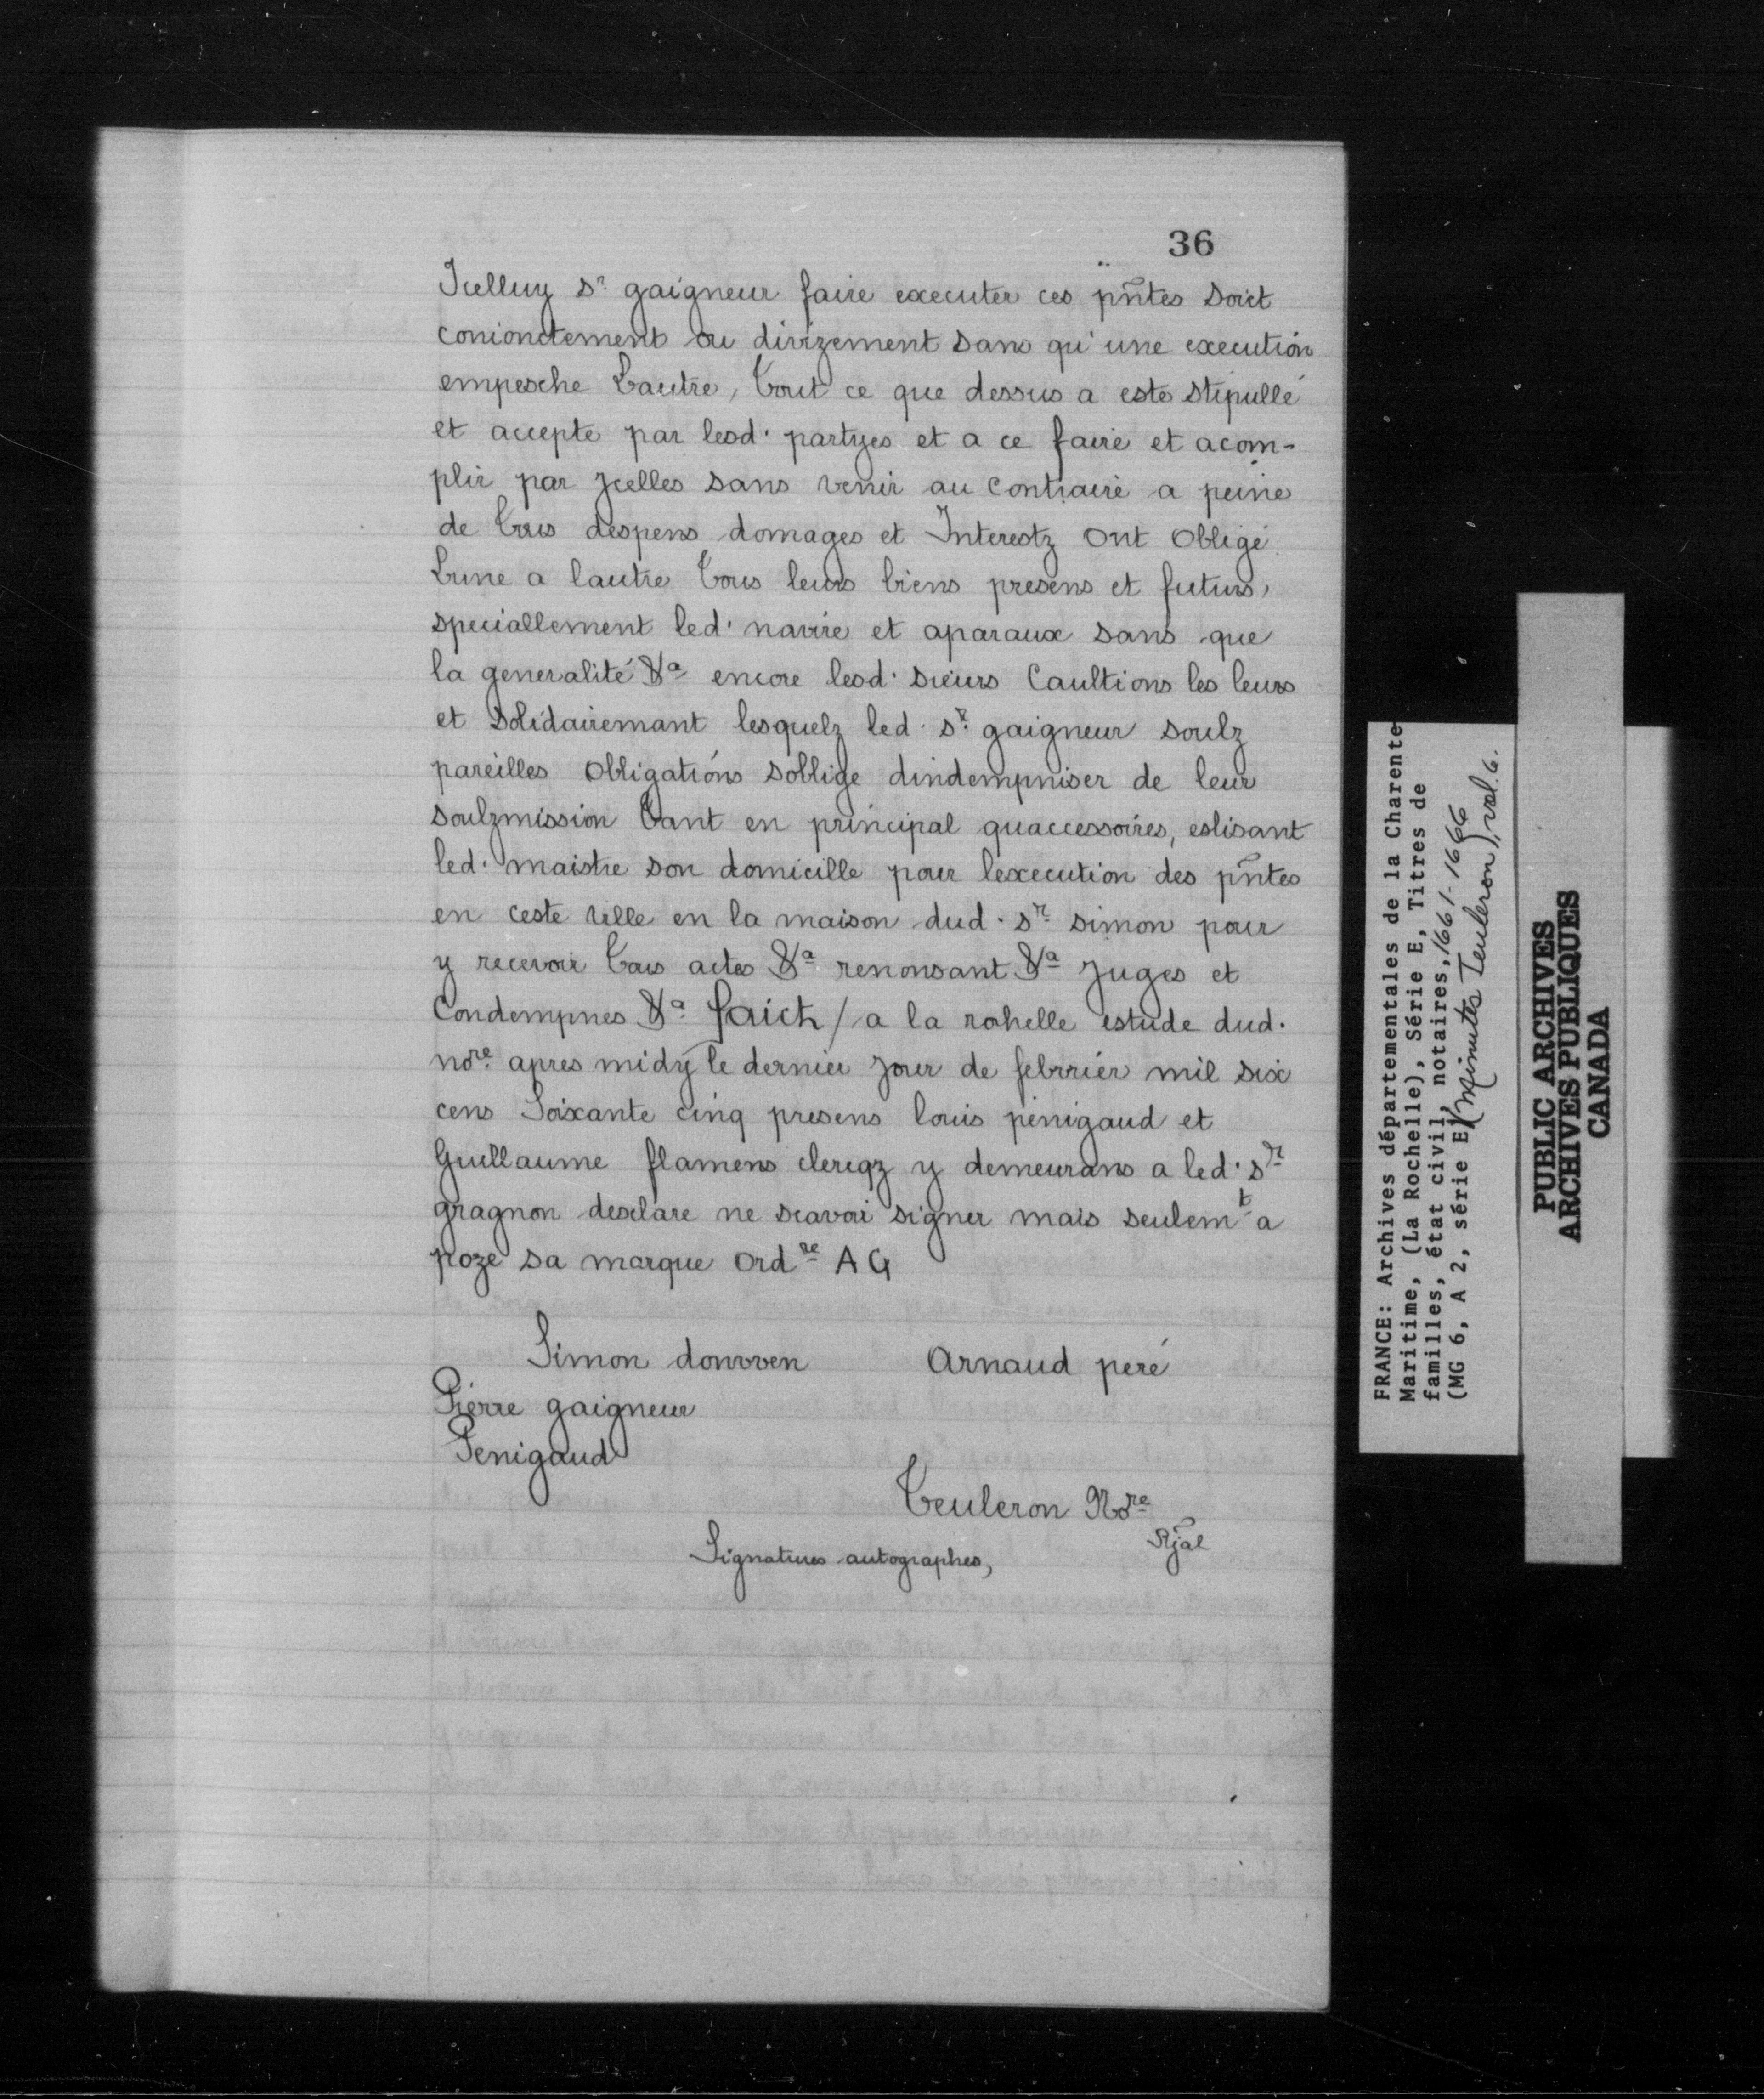 36
Icelluy sr gaigneur faire executer ces pñtes soict
conionctement ou divizement sans qu'une execution
empesche Lautre, Tout ce que dessus a este stipullé
et accepte par lesd. partyes et a ce faire et acom-
plir par Jcelles sans venir au contraire a peine
de Tous despens domages et Interestz ont obligé
Lune a lautre Tous leurs biens presens et futurs,
speciallement led. navire et aparaux sans que
la generalité &a encore lesd. sieurs Caultions les leurs
et Solidairemant lesquelz led. sr gaigneur soulz
pareilles obligations soblige dindempniser de leur
soulzmission Tant en principal quaccessoires, eslisant
led. maistre son domicille pour lexecution des pñtes
en ceste ville en la maison dud. sr simon pour
y recevoir Tous actes &a renonsant &a Juges et
Condempnes &a faict / a la rohelle estude dud.
nore apres midy le dernier Jour de febvrier mil six
cens Soixante cinq presens louis penigaud et
Guillaume flamens clercqz y demeurans a led. sr
gragnon desclare ne scavoir signer mais seulemt a
poze sa marque ordre AG
Simon donvven Arnaud peré
Pierre gaigneur
Penigaud
Teuleron Nore
Rjal
Signatures autographes,
FRANCE: Archives départementales de la Charente
Maritime, (La Rochelle), Série E, Titres de
familles, état civil, notaires, 1661-1666
(MG 6, A 2, série E) (Minutes Teuleron), vol. 6.
PUBLIC ARCHIVES
ARCHIVES PUBLIQUES
CANADA